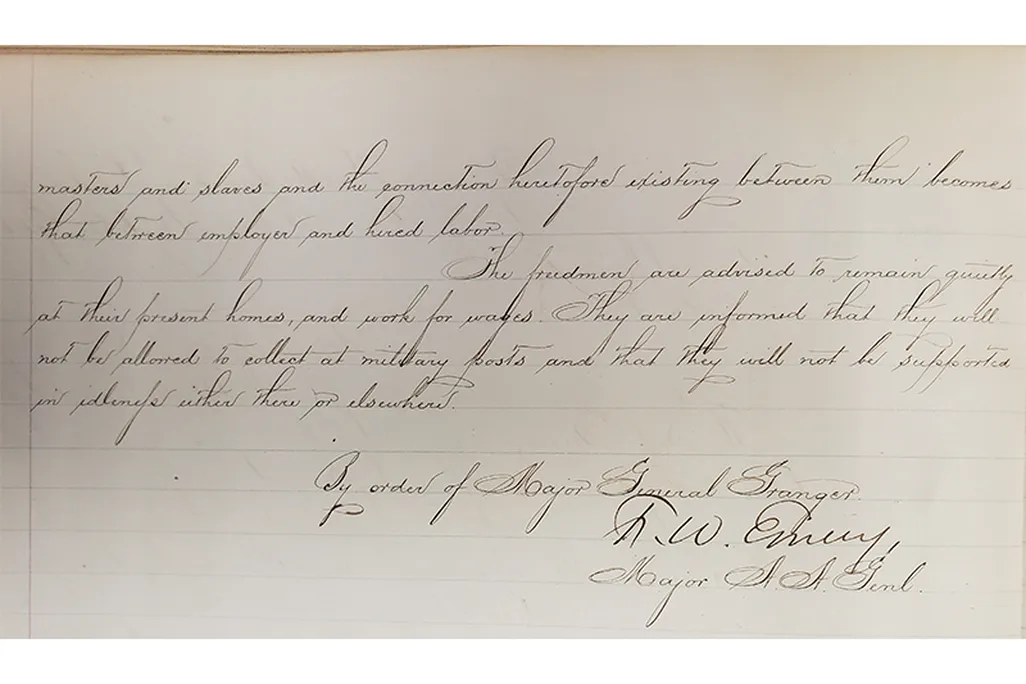 masters and slaves and the connection heretofore existing between them becomes
that between employer and hired labor.
The freedmen are advised to remain quietly
at their present homes, and work for wages. They are informed that they will
not be allowed to collect at military posts and that they will not be supported
in idleness either there or elsewhere.
By order of Major General Granger.
F. W. Emery,
Major A. A. Genl.